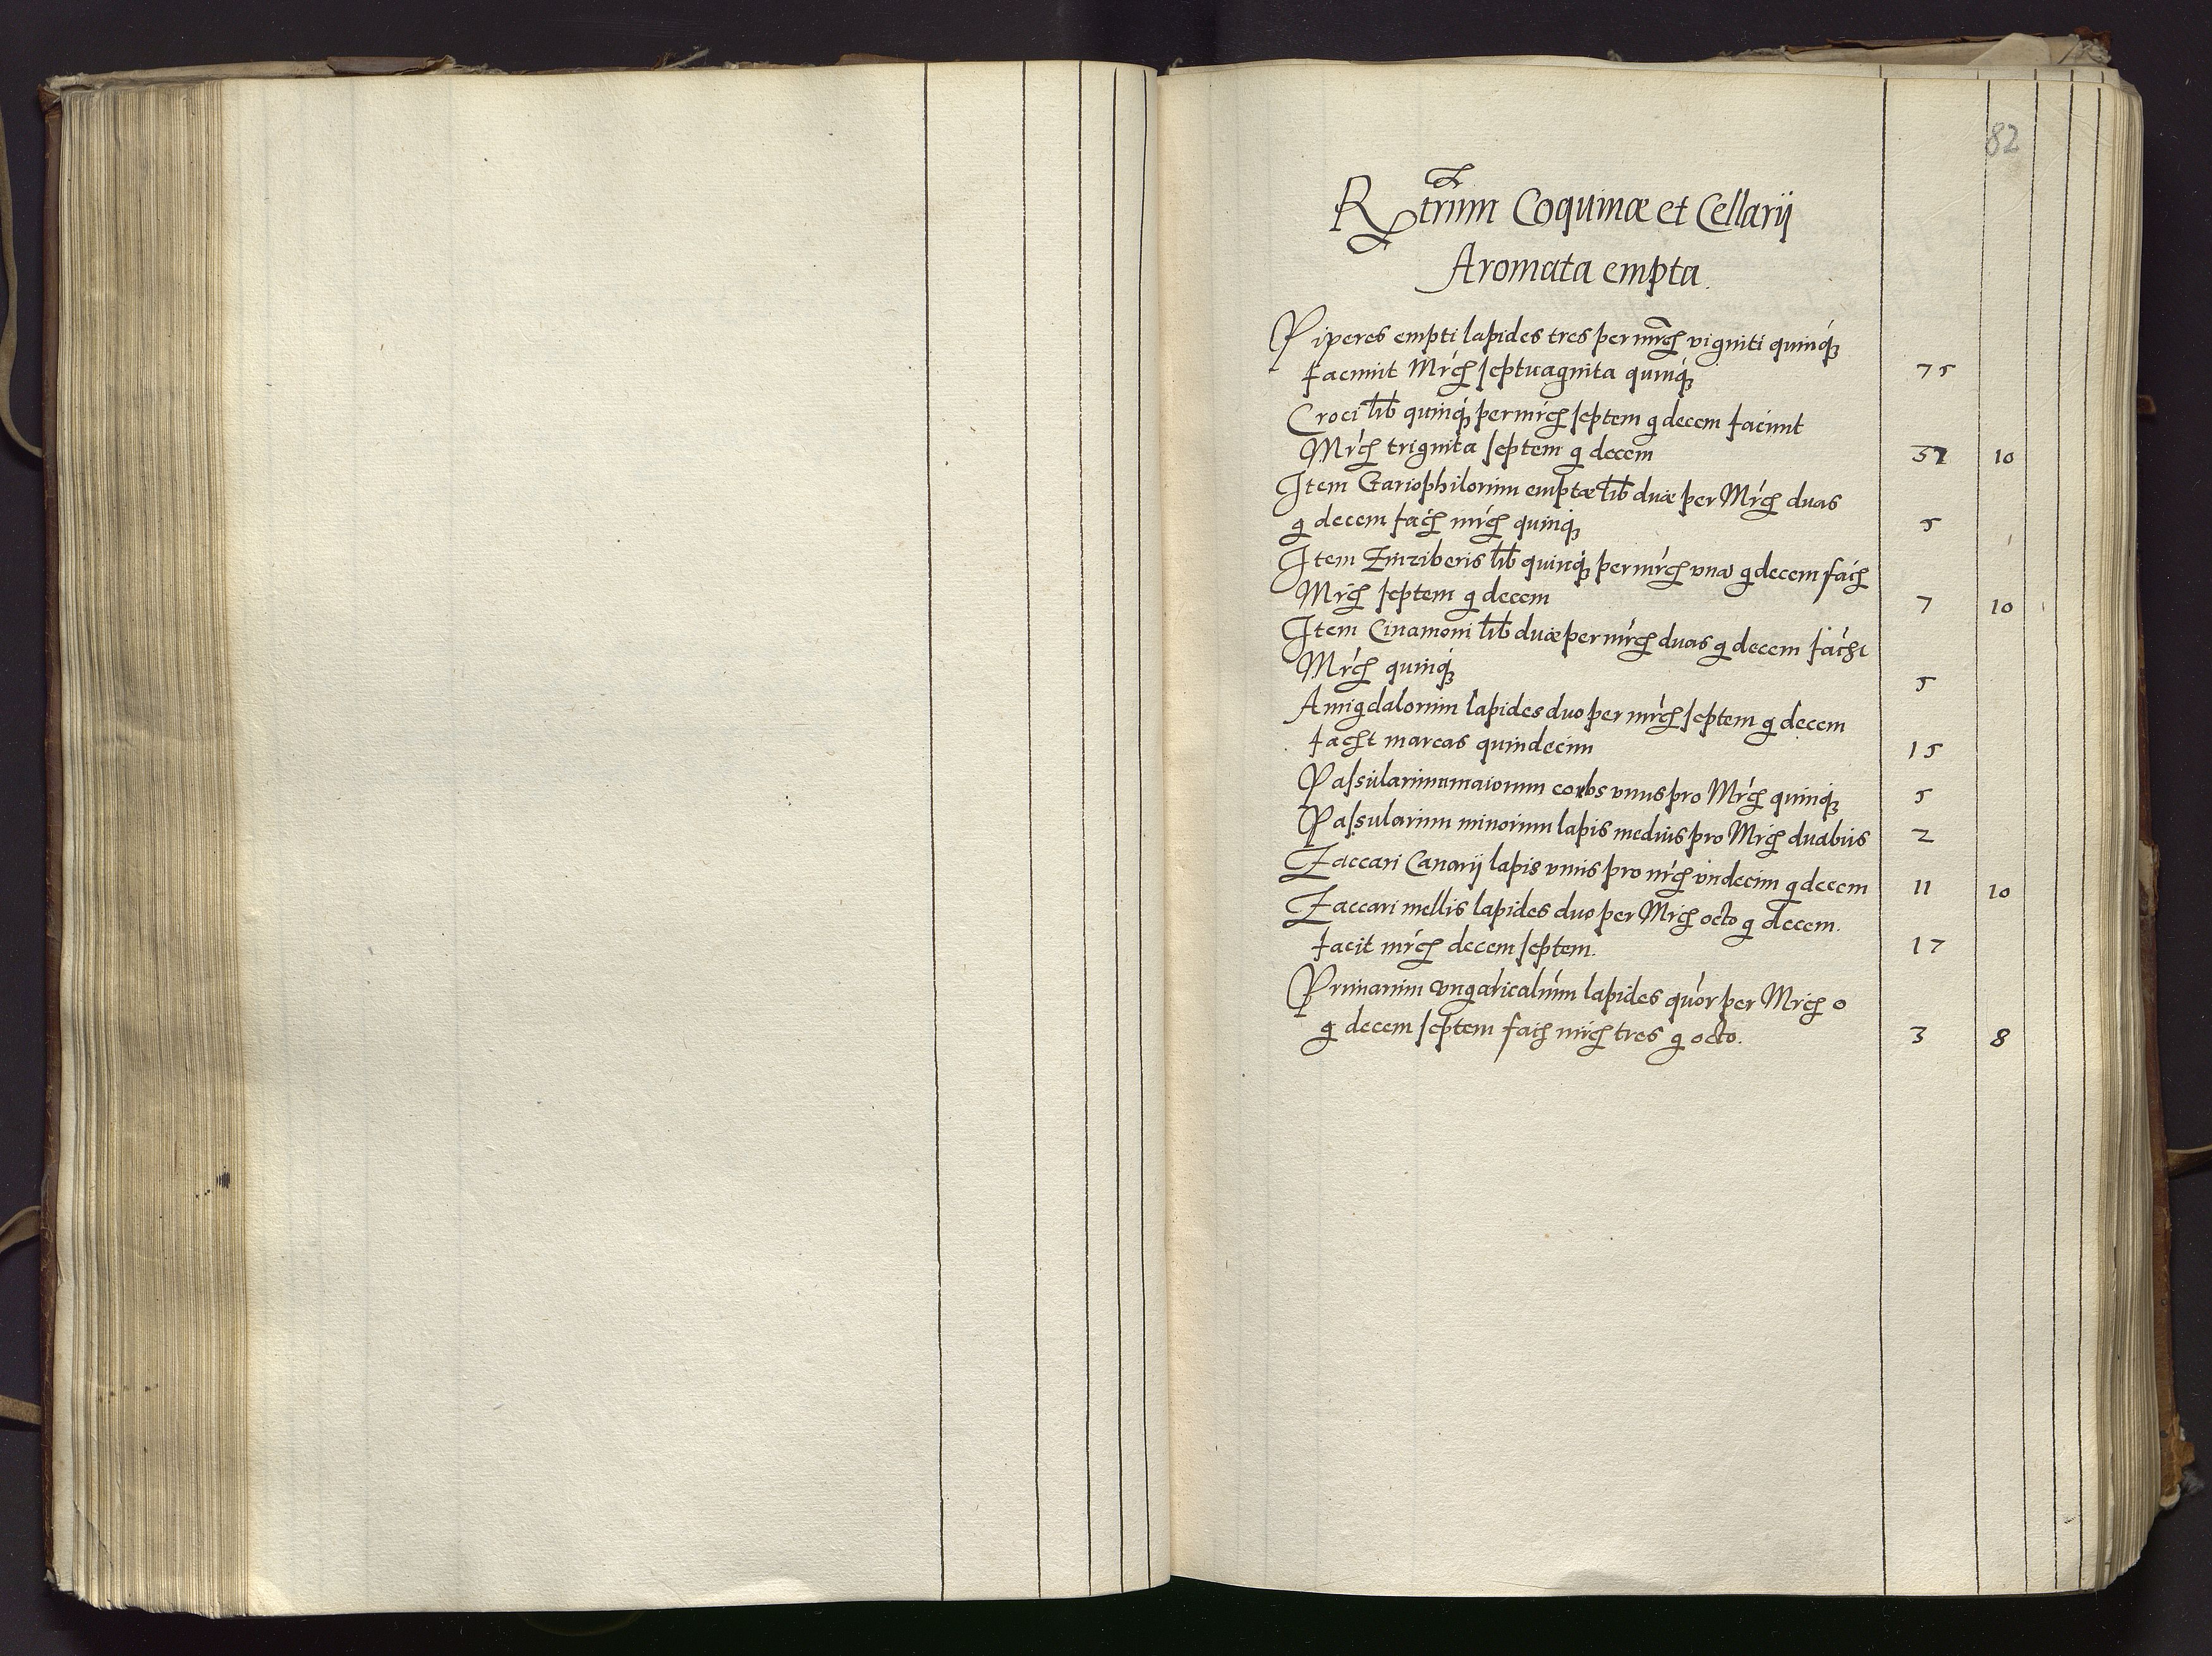 82
Rṭrum Coquinæ et Cellarij
Aromata empta.
Piperes empti lapides tres per mrch vigniti quinq̃ʒ
faciunt Mrch septuagnita quinq̃ʒ 75
Croci lib quinq̃ʒ per mrch septem g decem faciunt
Mrch trignita septem g decem 37 10
Item Gariophilorum emptæ lib duæ per Mrch duas
g decem fach mrch quinq̃ʒ 5
Item Zinziberis lib quinq̃ʒ per mrch vna g decem fach
Mrch septem g decem 7 10
Item Cinamoni lib duæ per mrch duas g decem facht
Mrch quinq̃ʒ 5
Amigdalorum lapides duo per mrch septem g decem
facht marcas quindecim 15
Passularum maiorum corbs vnus pro Mrch quinq̃ʒ 5
Passularum minorum lapis medius pro Mrch duabus 2
Zaccari Canarij lapis vnus pro mrch vndecim g decem 11 10
Zaccari mellis lapides duo per Mrch octo g decem.
facit mrch decem septem. 17
Prunarum vngaricalium lapides quor per Mrch o
g decem septem fach mrch tres g octo. 3 8